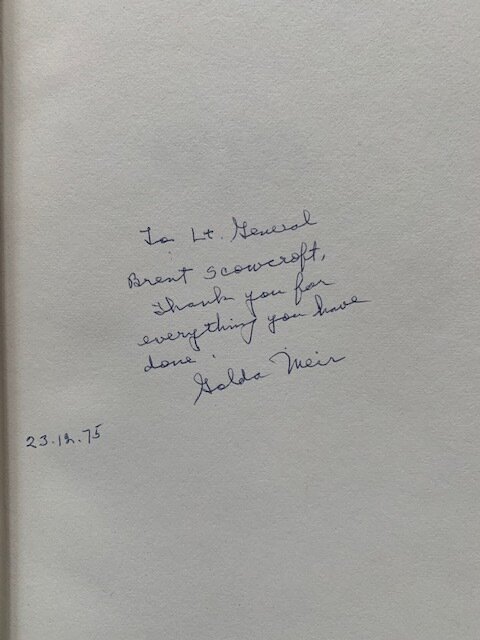 To Lt. General
Brent Scowcroft,
Thank you for
everything you have
done.
Golda Meir
23.12.75